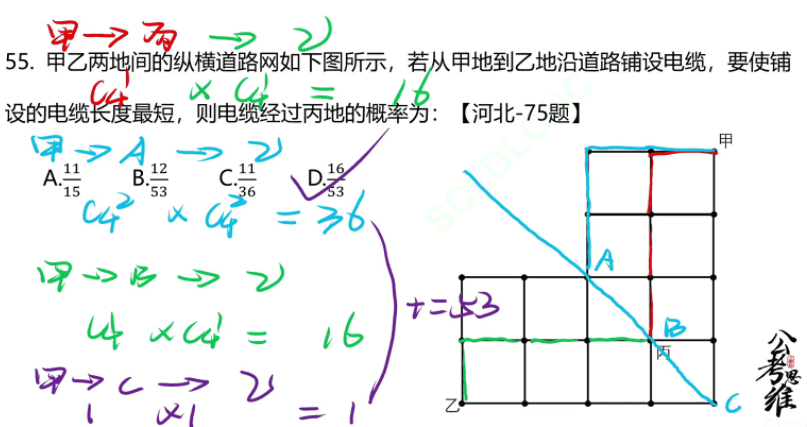 甲→丙→乙
55. 甲乙两地间的纵横道路网如下图所示，若从甲地到乙地沿道路铺设电缆，要使铺
C₄¹ × C₄¹ = 16
设的电缆长度最短，则电缆经过丙地的概率为：【河北-75题】
甲→A→乙
A.11/15 B.12/53 C.11/36 D.16/53
C₄² × C₄² = 36
甲→B→乙
C₄¹ × C₄¹ = 16
甲→C→乙
1 × 1 = 1
+=53
甲
A
B
丙
乙
C
公考思维